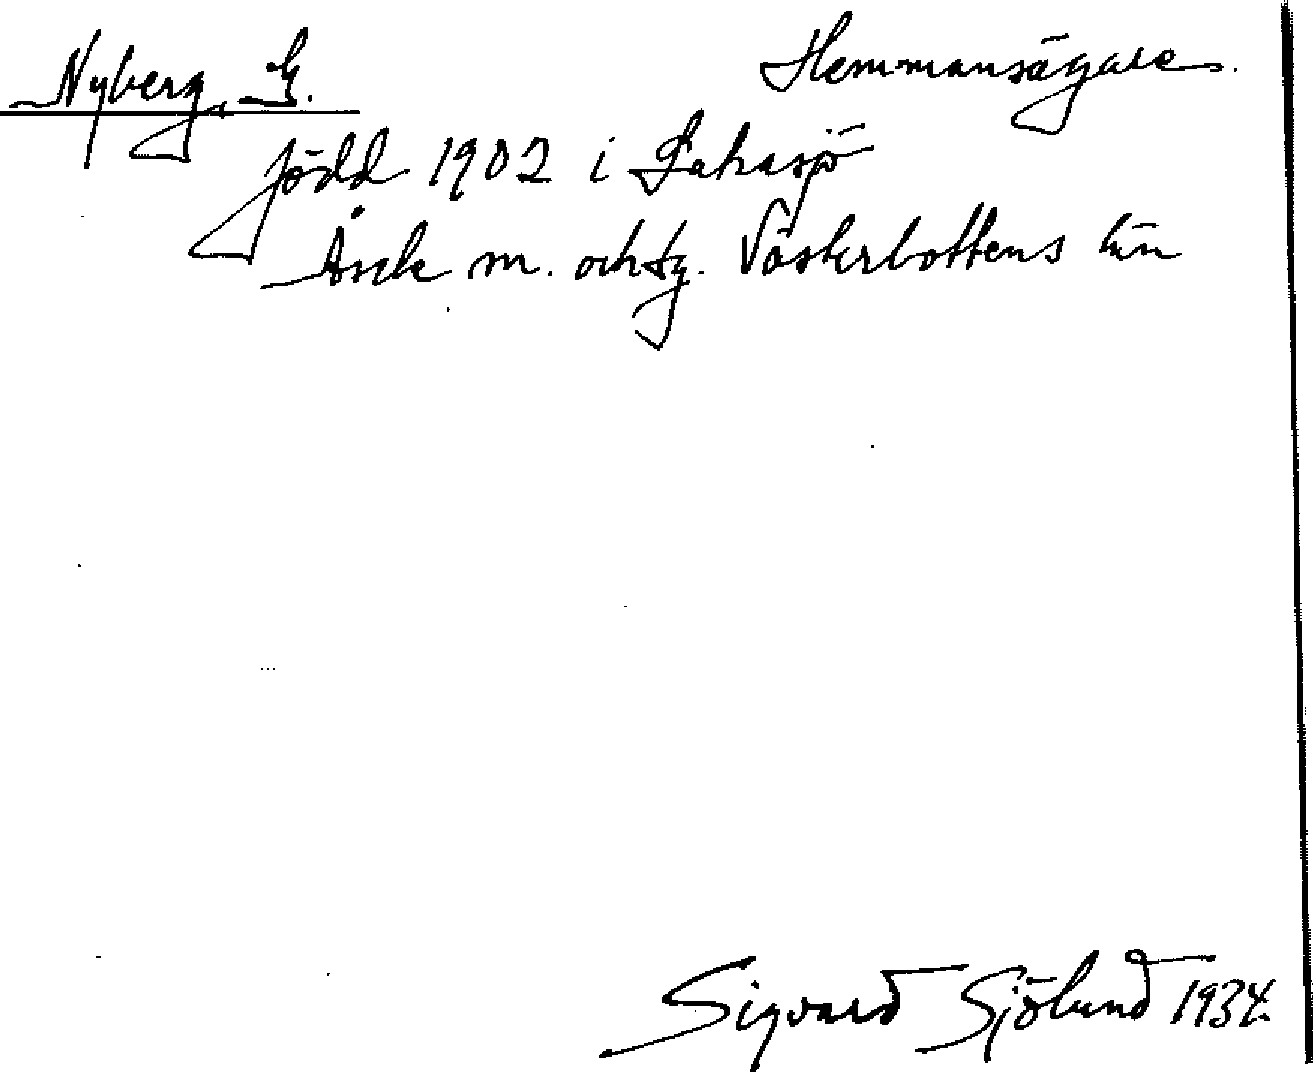 Nyberg, G. Hemmansägare.
född 1902 i Lakasjö
Åsele m. och tg. Västerbottens län
Sigvard Sjölund 1934.